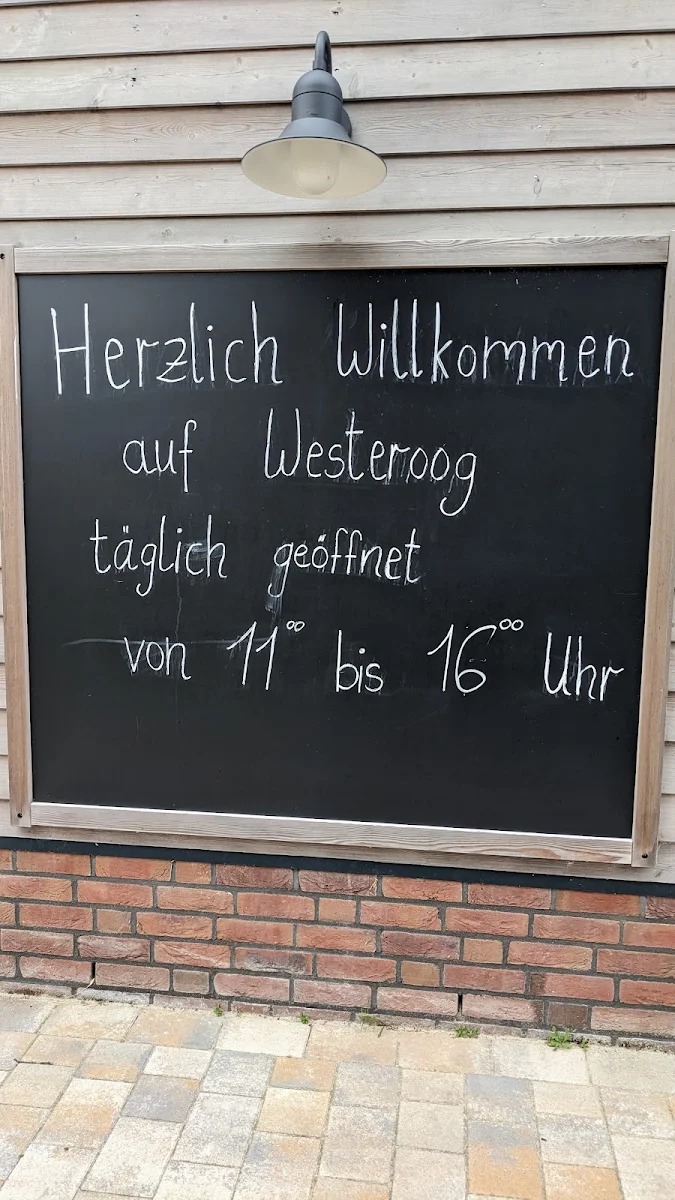 Herzlich Willkommen
auf Westeroog
täglich geöffnet
von 11°° bis 16°° Uhr